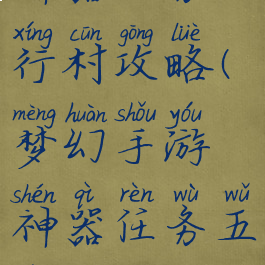 xíng cūn gōng lüè
行村攻略(
mèng huàn shǒu yóu
梦幻手游
shén qì rèn wù wǔ
神器任务五